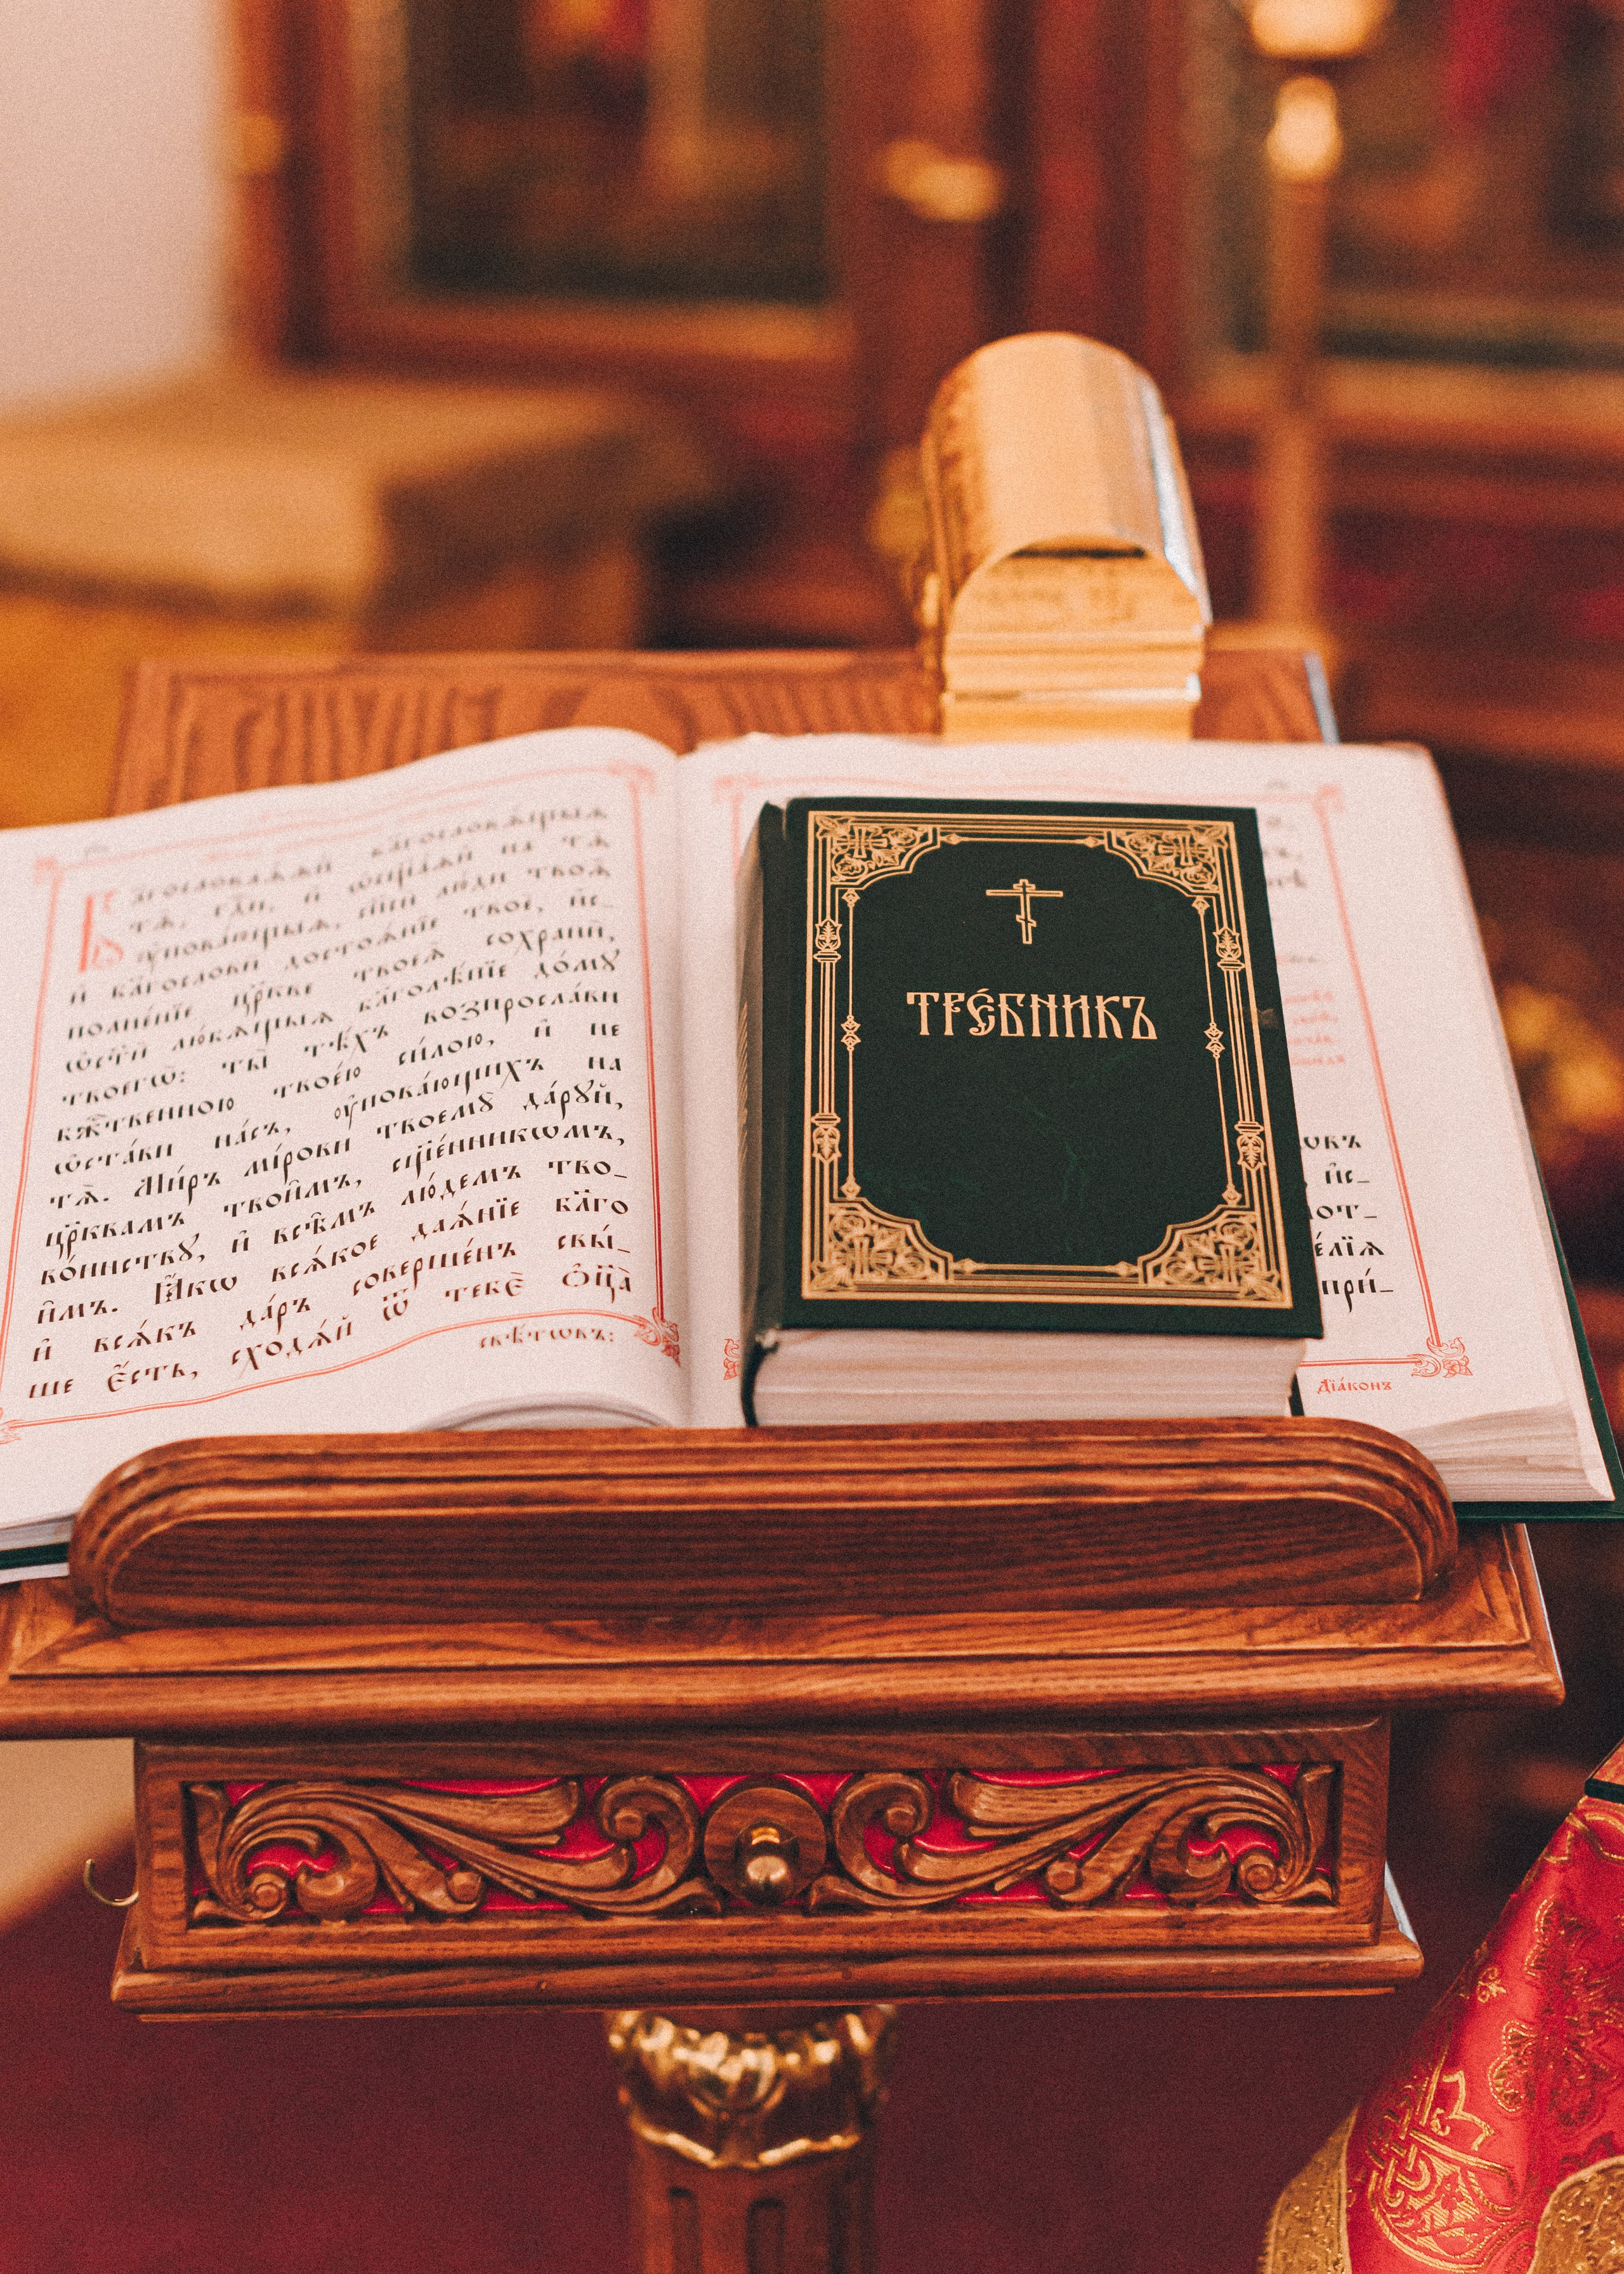 Бл҃гословлѧ́ѧй бл҃гословѧ́щыѧ
тѧ̀, гдⷭ҇и, и҆ ѡ҆сщ҃а́ѧй на тѧ̀
ᲂу҆пова́ющыѧ, сп҃си лю́ди твоѧ̑
и҆ бл҃гословѝ достоѧ́нїе твоѐ, и҆с-
полне́нїе цр҃кве твоеѧ̀ сохранѝ,
ѡ҆ст҃ѝ лю́бѧщыѧ бл҃голѣ́пїе до́мꙋ
твоегѡ̀: ты̀ тѣ́хъ воспросла́ви
бжⷭ҇твенною твое́ю си́лою, и҆ не
ѡ҆ста́ви на́съ, ᲂу҆пова́ющихъ на
тѧ̀. Ми́ръ мі́рови твоемꙋ̀ да́рꙋй,
цр҃квамъ твои̑мъ, сщ҃е́нникѡмъ,
во́инствꙋ, и҆ всѣ̑мъ лю́демъ тво-
и̑мъ. Ꙗ҆́кѡ всѧ́кое даѧ́нїе бл҃го
и҆ всѧ́къ да́ръ соверше́нъ свы́-
ше є҆́сть, сходѧ́й ѿ тебє̀ ѻ҆ц҃а̀
свѣ́тѡвъ:
ТРЕ́БНИКЪ
ѡвъ
, и҆с-
лот-
е́лїѧ
при́-
Дїа́конъ